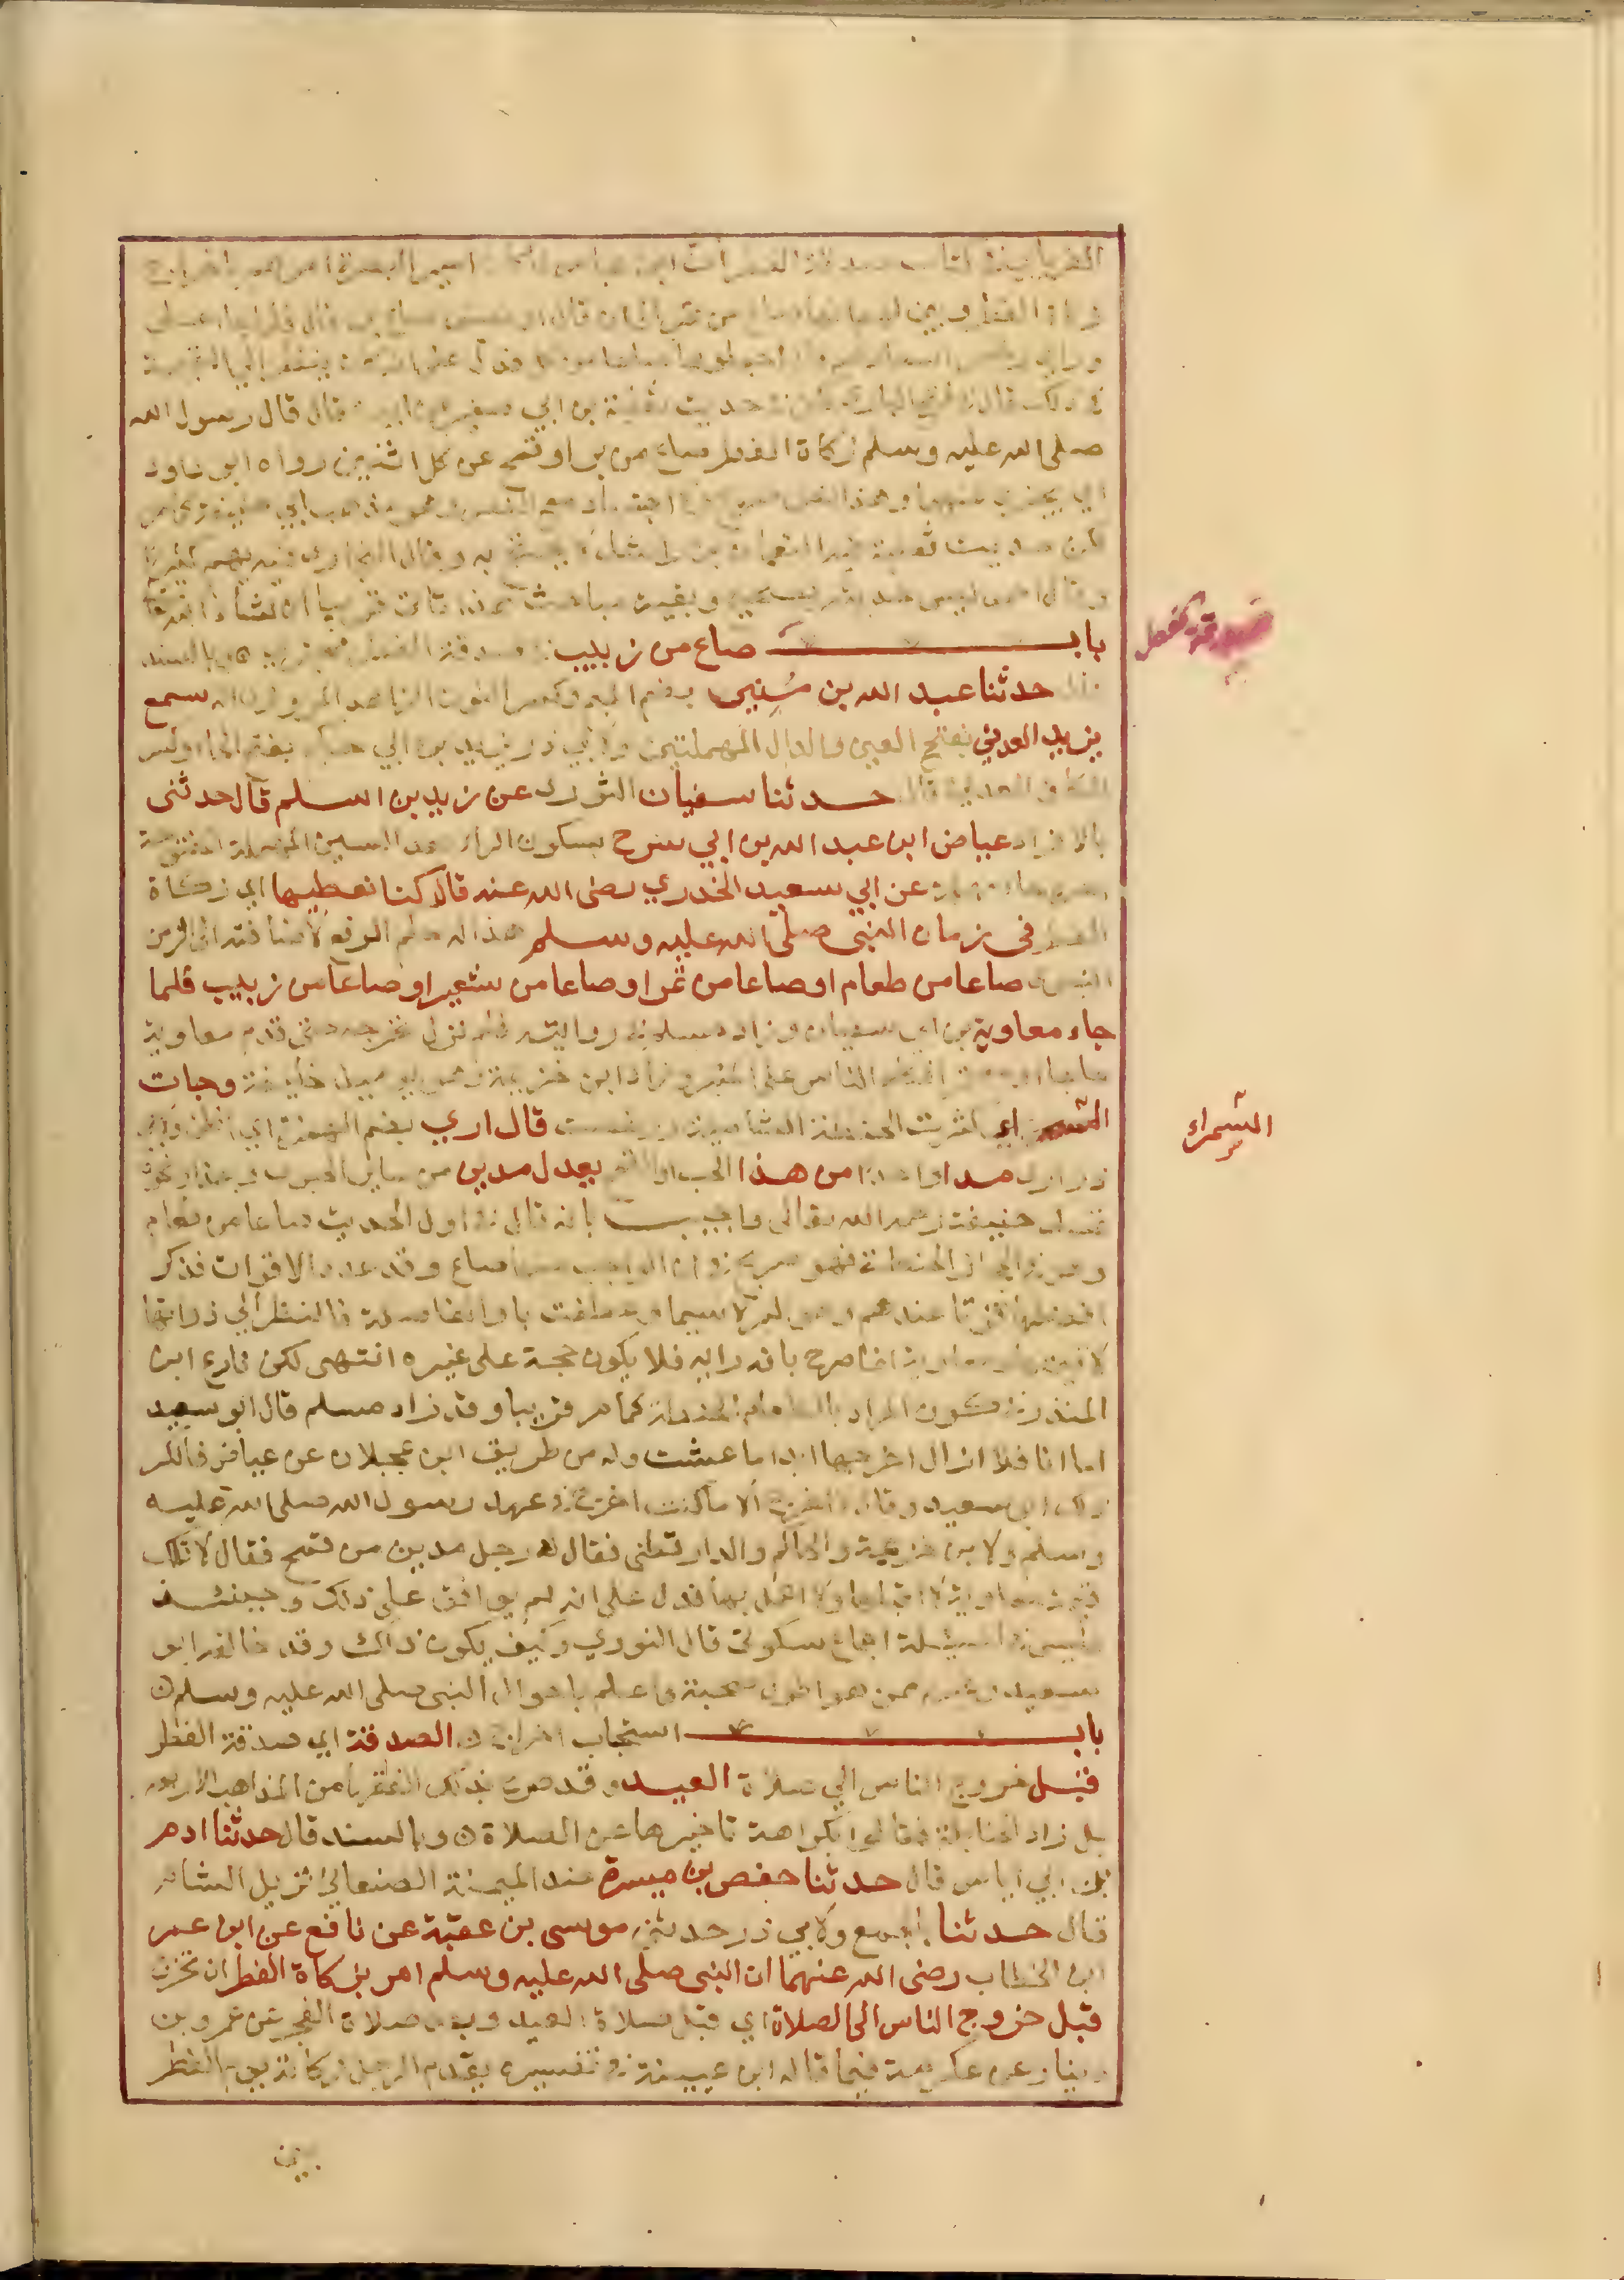 الفريابي في كتاب صدقة الفطر ان ابن عباس لما كان امير البصرة امرهم باخراج
زكاة الفطر وبين لهم انها صاع من تمر الى ان قال او نصف صاع من بر قال فلما جاء علي
وراى رخص اسعارهم قال اجعلوها صاعا من كل فدل على انه كان ينظر الى القيمة
في ذلك قاله في فتح الباري لكن في حديث ثعلبة بن ابي صعير عن ابيه قال قال رسول الله
صلى الله عليه وسلم زكاة الفطر صاع من بر او قمح عن كل اثنين رواه ابو داود
اي يجزي عنهما وهذا نص صريح
لكن حديث ثعلبة فيه النعمان بن راشد لا يحتج به وقال البخاري فيه يهم كثيرا
وقال احمد ليس حديثه بصحيح وبقية مباحث هذا تاتي قريبا ان شاء الله تعالى
باب صاع من زبيب في صدقة الفطر مجزي ه وبالسند
قال حدثنا عبد الله بن مُنِير بضم الميم وكسر النون الزاهد المروزي انه سمع
يزيد العدني بفتح العين والدال المهملتين ولابي ذر يزيد بن ابي حكيم بفتح الحاء وكسر
الكاف العدني قال حدثنا سفيان الثوري عن زيد بن اسلم قال حدثني
بالافراد عياض ابن عبد الله بن ابي سرح بسكون الراء بعد السين المهملة المفتوحة
اخره حاء مهملة عن ابي سعيد الخدري رضى الله عنه قال كنا نعطيها اي زكاة
الفطر في زمان النبي صلى الله عليه وسلم هذا له حكم الرفع لاضافته الى الزمن
النبوي صاعا من طعام او صاعا من تمر او صاعا من شعير او صاعا من زبيب فلما
جاء معاوية بن ابي سفيان وزاد مسلم في روايته فلم نزل نخرجه حتى قدم معاوية
حاجا او معتمرا فكلم الناس على المنبر وزاد ابن خزيمة وهو يوميذ خليفة وجات
السمراء اي كثرت الحنطة الشامية ورخصت قال ارى بضم الهمزة اي اظن ولابي
ذر ارى مدا واحدا من هذا الحب او القمح يعدل مدين من ساير الحبوب وبهذا ونحوه
تمسك حنيفة رحمه الله تعالى واجيب بانه قال في اول الحديث صاعا من طعام
وهو في الحجاز الحنطة فهو صريح في ان الواجب منها صاع وقد عدد الاقوات فذكر
افضلها قوتا عندهم وهو البر لا سيما وعطفت باو الفاصلة فالنظر الى ذواتها
لا قيمتها ومعاوية انما صرح بانه رايه فلا يكون حجة على غيره انتهى لكن نازع ابن
المنذر في كون المراد بالطعام الحنطة كما مر قريبا وقد زاد مسلم قال ابو سعيد
اما انا فلا ازال اخرجها ابدا ما عشت وله من طريق ابن عجلان عن عياض فانكر
ذلك ابو سعيد وقال لا اخرج الا ما كنت اخرج في عهد رسول الله صلى الله عليه
وسلم ولابن خزيمة والحاكم والدارقطني فقال له رجل مدين من قمح فقال لا تلك
قيمة معاوية لا اقبلها ولا اعمل بها فدل على انه لم يوافق على ذلك وحينئذ
فليس في المسئلة اجماع سكوتي قال النووي وكيف يكون ذلك وقد خالفه ابو
سعيد وغيره ممن هو اطول صحبة واعلم باحوال النبي صلى الله عليه وسلم ه
باب استحباب اخراج الصدقة اي صدقة الفطر
قبل خروج الناس الى صلاة العيد وقد صرح بذلك الفقهاء من المذاهب الاربعة
بل زاد الحنابلة فقالوا بكراهة تاخيرها عن الصلاة ه وبالسند قال حدثنا ادم
بن ابي اياس قال حدثنا حفص بن ميسرة ضد الميمنة الصنعاني نزيل الشام
قال حدثنا بالجمع ولابي ذر حدثني موسى بن عقبة عن نافع عن ابن عمر
ابن الخطاب رضى الله عنهما ان النبي صلى الله عليه وسلم امر بزكاة الفطر ان تخرج
قبل خروج الناس الى الصلاة اي قبل صلاة العيد وبعد صلاة الفجر عن عمرو بن
دينار عن عكرمة فيما قاله ابن عيينة في تفسيره يقدم الرجل زكاته يوم الفطر
السمراء